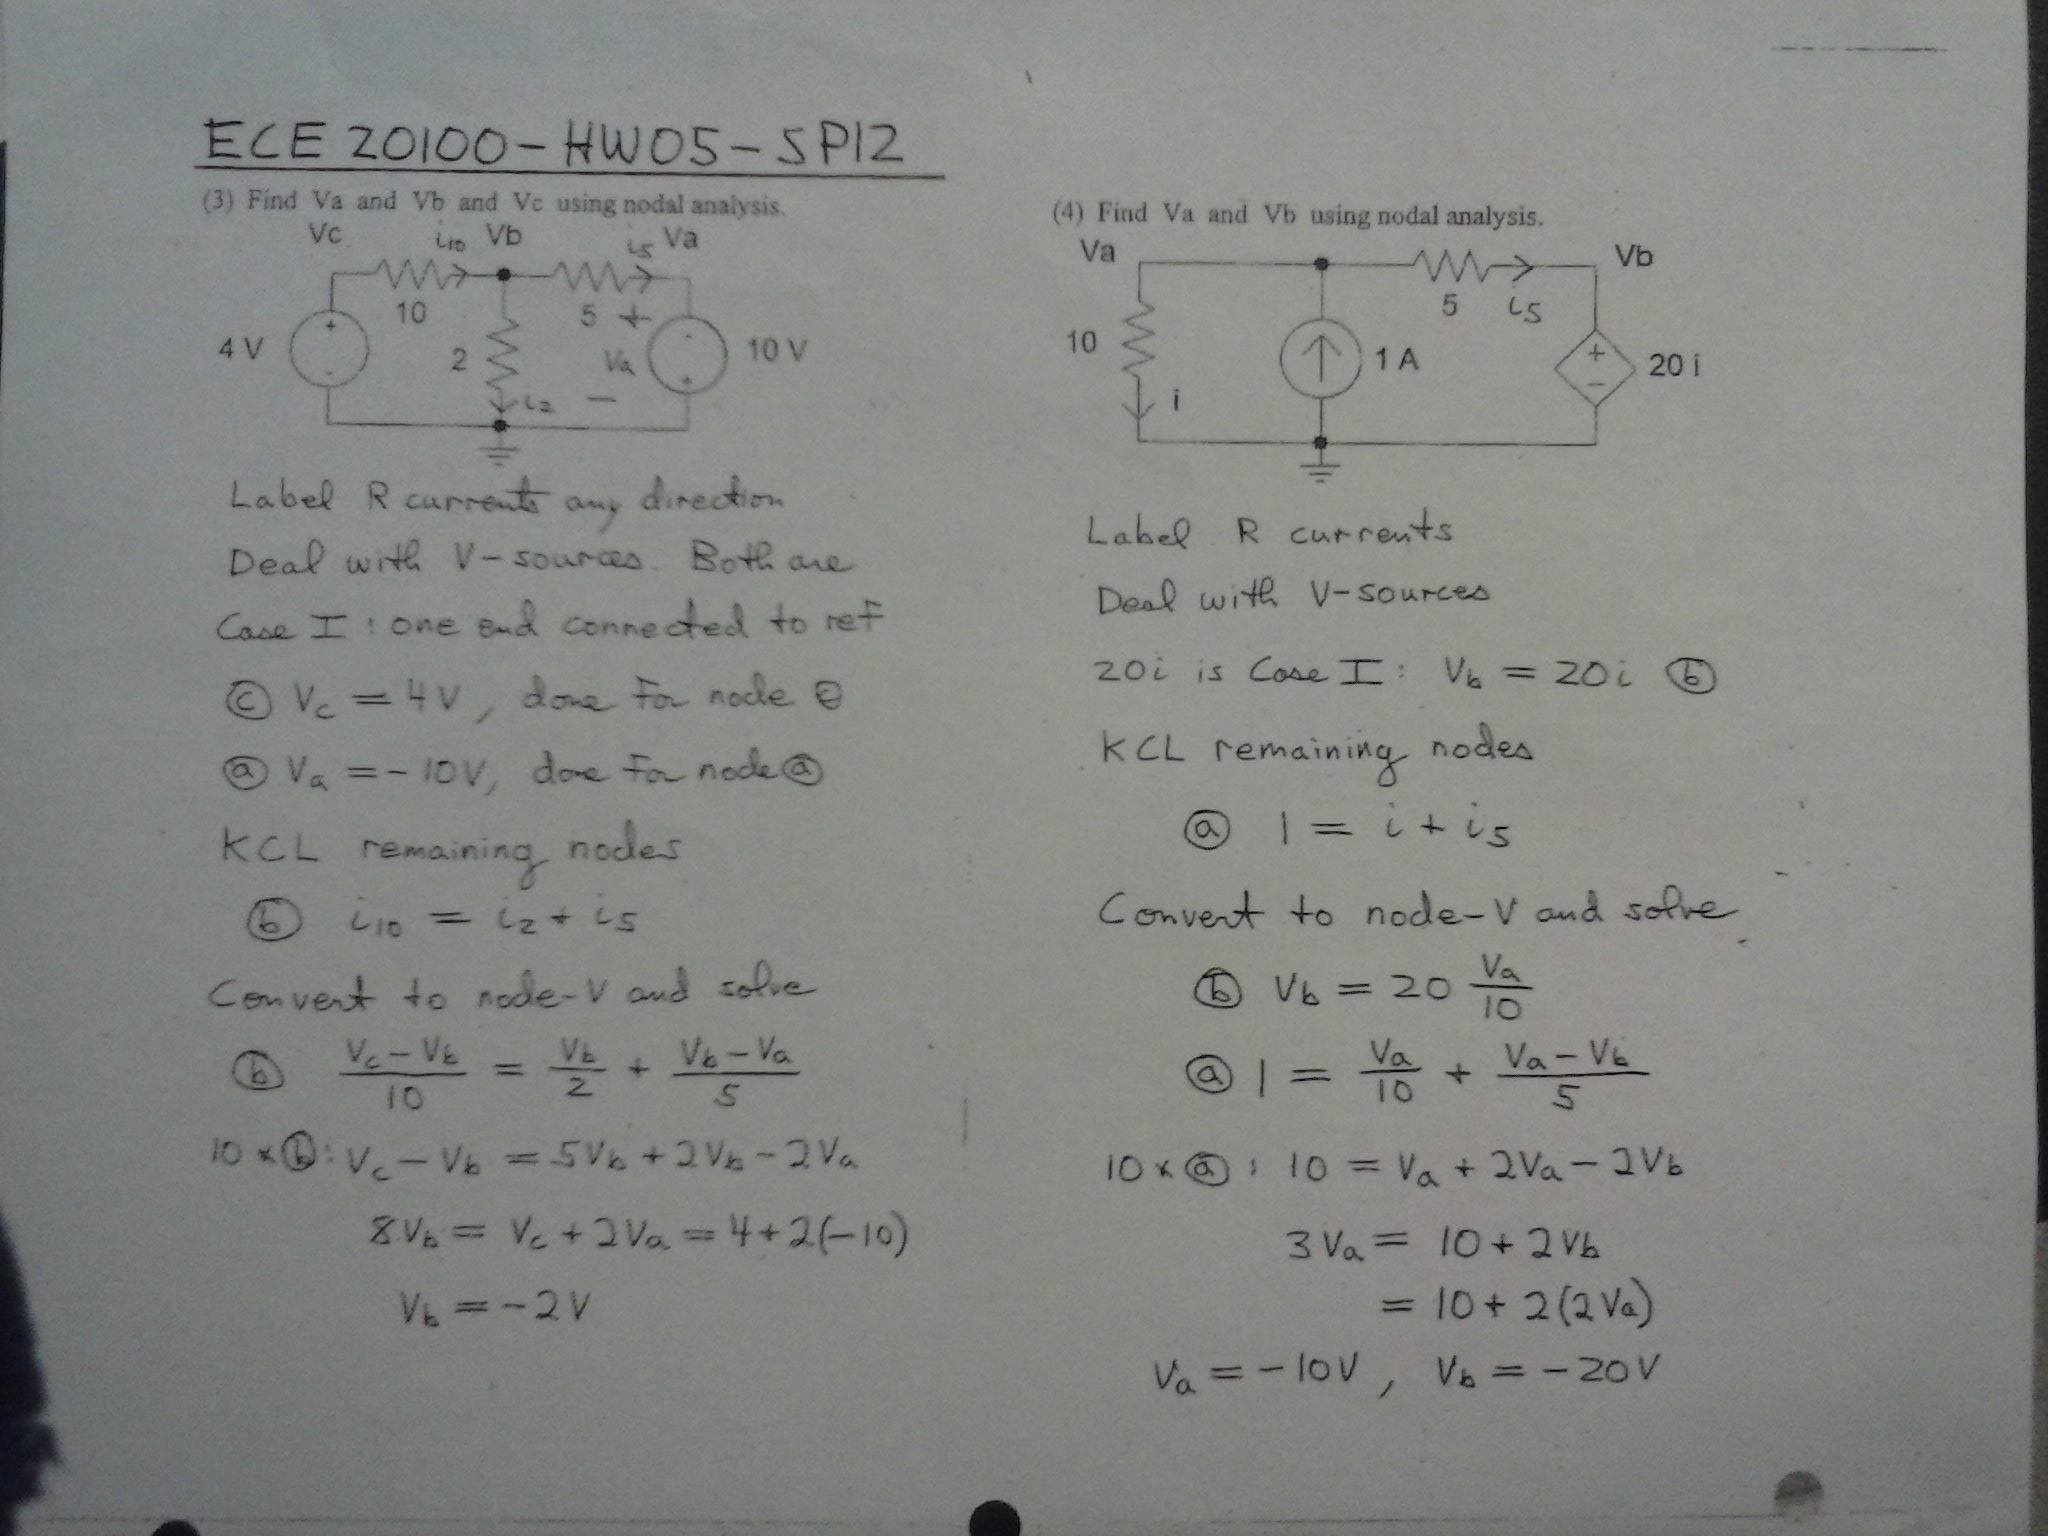 ECE 20100-HW05-SP12
(3) Find Va and Vb and Vc using nodal analysis.
Vc i10 Vb i5 Va
10 5 +
4 V 2 Va 10 V
i2 −
Label R currents any direction
Deal with V-sources. Both are
Case I: one end connected to ref
ⓒ Vc = 4V, done for node ⓒ
ⓐ Va = -10V, done for node ⓐ
KCL remaining nodes
ⓑ i10 = i2 + i5
Convert to node-V and solve
ⓑ (Vc - Vb)/10 = Vb/2 + (Vb - Va)/5
10 × ⓑ: Vc - Vb = 5Vb + 2Vb - 2Va
8Vb = Vc + 2Va = 4 + 2(-10)
Vb = -2V
(4) Find Va and Vb using nodal analysis.
Va Vb
5 i5
10 1 A + − 20 i
i
Label R currents
Deal with V-sources
20i is Case I: Vb = 20i ⓑ
KCL remaining nodes
ⓐ 1 = i + i5
Convert to node-V and solve
ⓑ Vb = 20 Va/10
ⓐ 1 = Va/10 + (Va - Vb)/5
10 × ⓐ: 10 = Va + 2Va - 2Vb
3Va = 10 + 2Vb
= 10 + 2(2Va)
Va = -10V, Vb = -20V